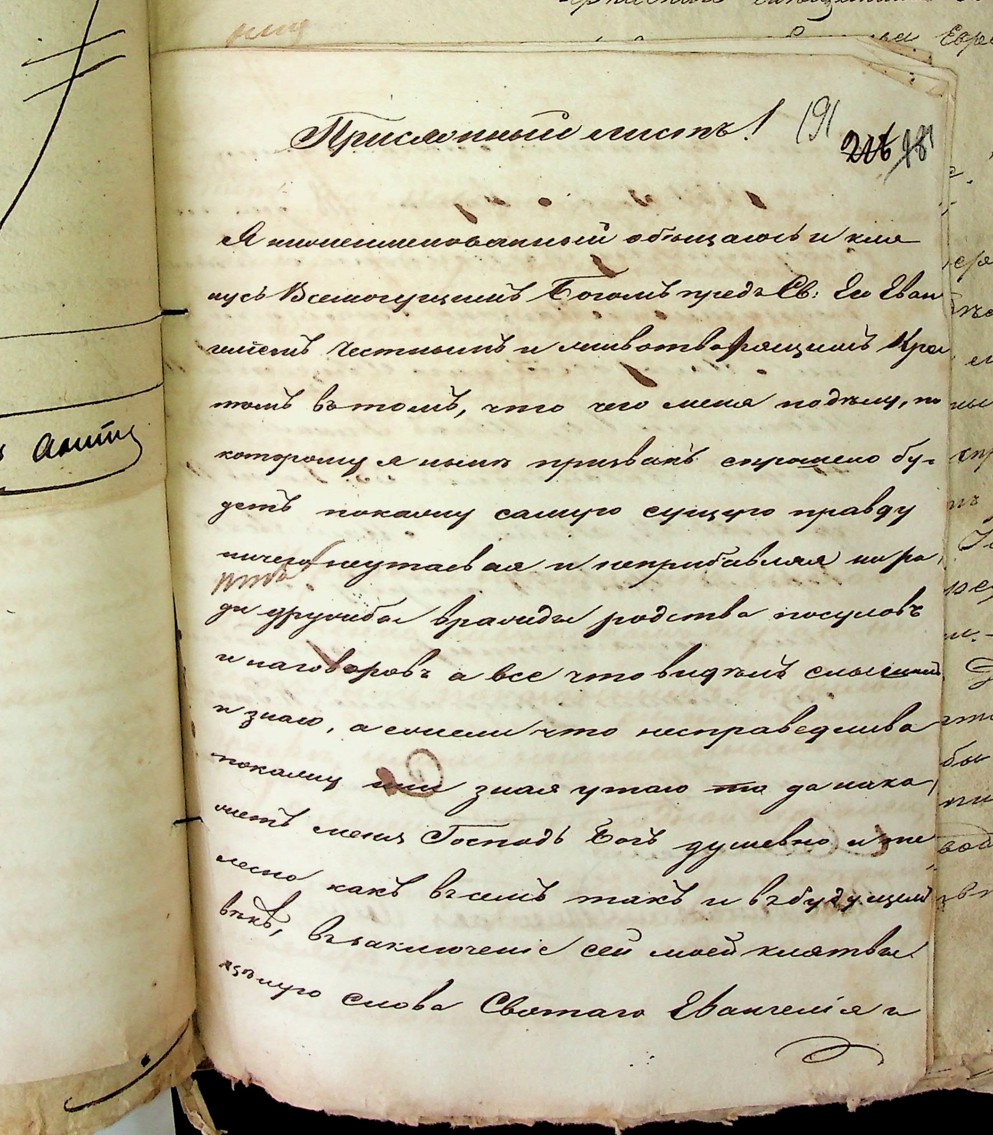 Присяжный листъ!
191
216 181
Я нижеименованный обѣщаюсь и кля
нусь Всемогущимъ Богомъ предъ Св: Ею Еван
геліемъ Честнымъ и животворящимъ Крес
томъ въ томъ, что чего меня подѣлу, по
которому я нынѣ призванъ спрошено бу-
детъ покажу самую сущую правду
ничего неутаевая и неприбавляя нира
ди дружбы вражды родства посуловъ
и наговоровъ а все что видѣлъ слышалъ
и знаю, а если что несправедливо
покажу или зная утаю то да нака
жетъ меня Господь Богъ душевно и те
лесно какъ всемъ такъ и въбудущемъ
вѣкѣ, въ заключеніе сей моей клятвы
цѣлую слова Святаго Евангелія и